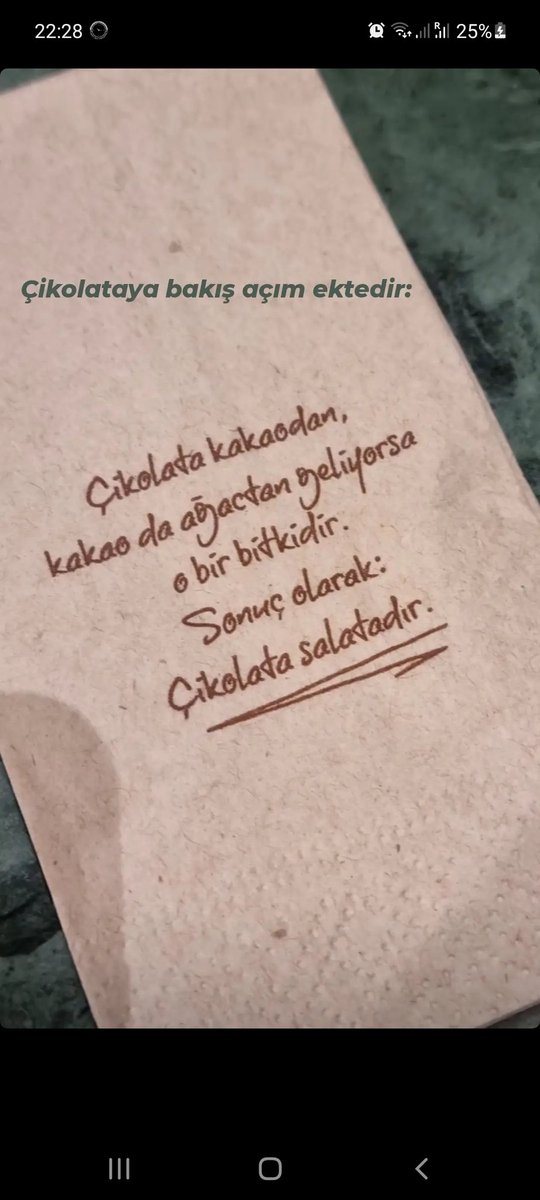 22:28
R
25%
Çikolataya bakış açım ektedir:
Çikolata kakaodan,
kakao da ağaçtan geliyorsa
o bir bitkidir.
Sonuç olarak:
Çikolata salatadır.